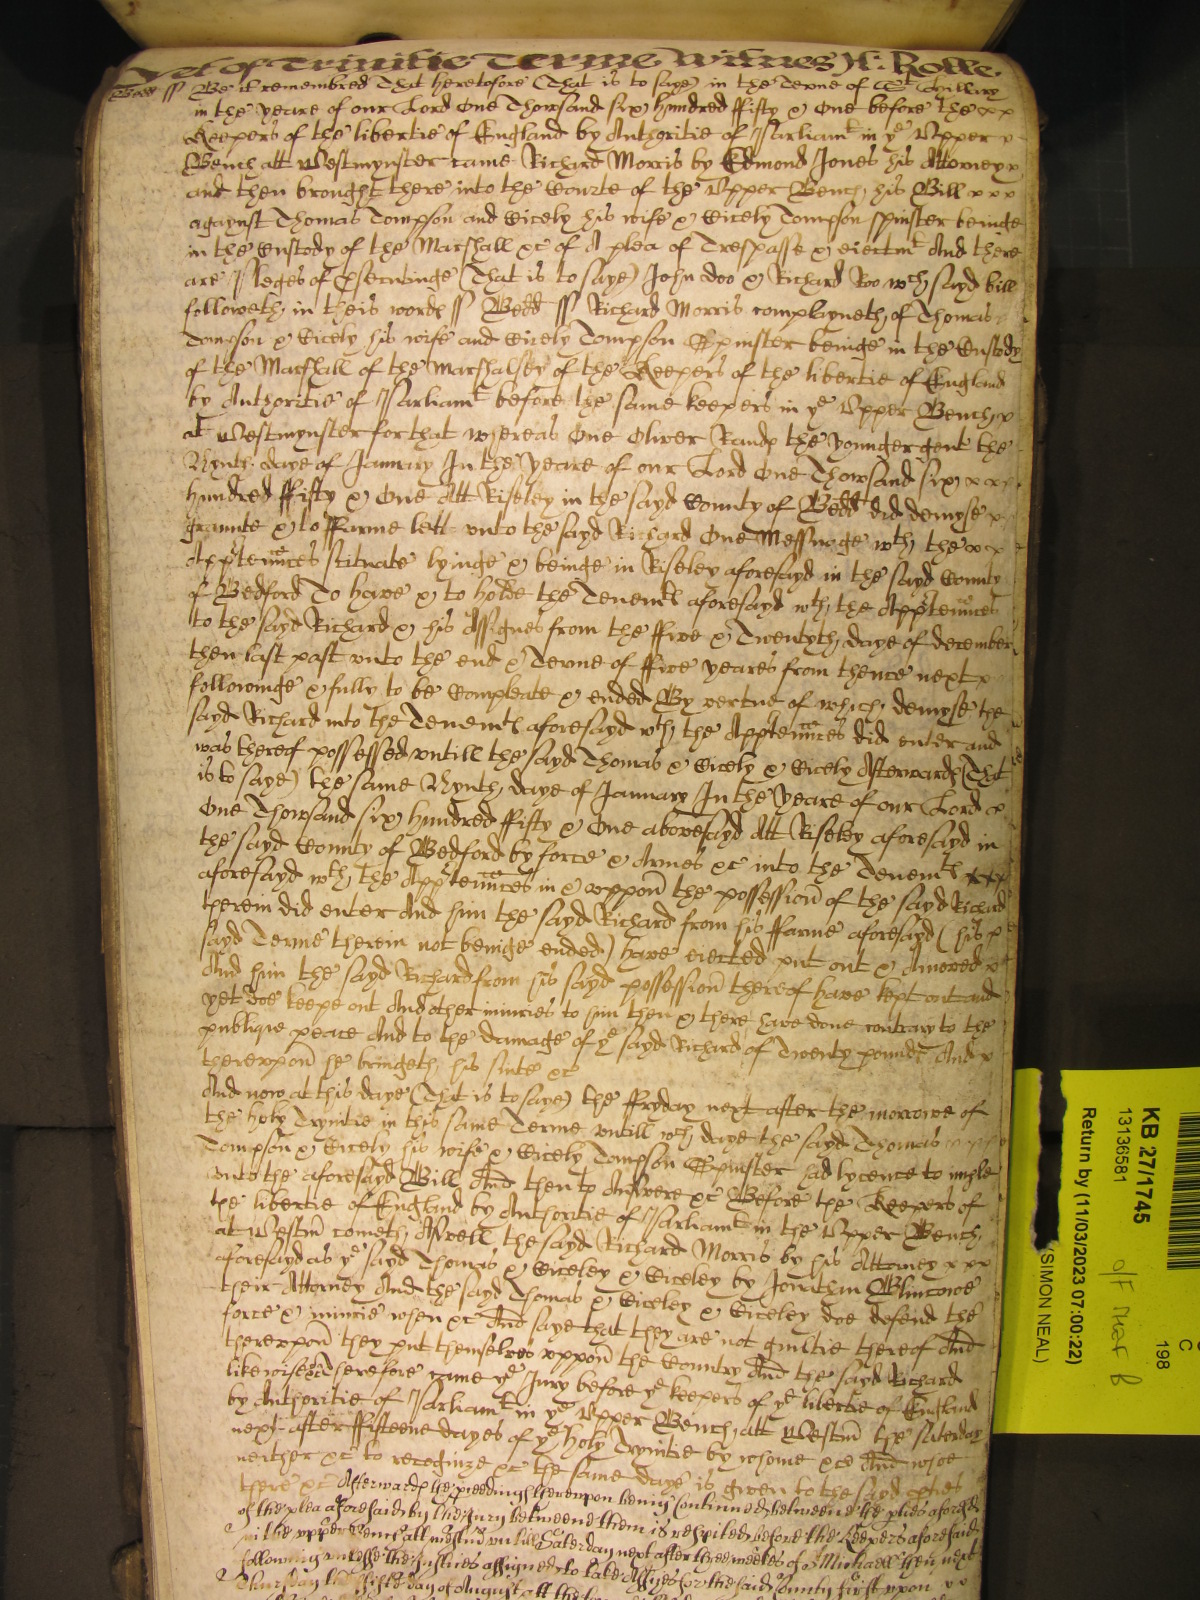 Yet of Trinitie Terme Witnes H: Rolle
Bedd ss Be it remembred That heretofore (That is to saye) in the Terme of St Hillary
in the yeare of our Lord One Thowsand six hundred ffifty & One before the x x
Keepers of the libertie of England by Authoritie of Parliamt in ye Upper x
Bench att Westmynster came Richard Morris by Edmond Jones his Attorney x
and then brought there into the Courte of the Upper Bench his Bill x x x
agaynst Thomas Tompson and Cicely his wife & Cicely Tompson spinster beinge
in the Custody of the Marshall &c of A plea of Trespasse & eiectmt And there
are Pleges of Prosecutinge (That is to saye) John Doo & Richard Roo wch sayd bill
followeth in theis words ss Bedd ss Richard Morris complayneth of Thomas
Tompson & Cicely his wife and Cicely Tompson Spinster beinge in the Custody
of the Marshall of the Marshalsey of the Keepers of the libertie of England
by Authoritie of Parliamt before the same keepers in ye Upper Bench x
at Westmynster for that whereas One Oliver Rands the younger gent the
Nynth daye of January In the Yeare of our Lord One Thowsand six x x x
hundred ffifty & One Att Riseley in the sayd County of Bedd did demyse x
graunte & to ffarme lett unto the sayd Richard One Messuage wth the x x
Apptennces scituate lyinge & beinge in Riseley aforesayd in the sayd County
of Bedford To have & to holde the Tenemts aforesayd wth the Apptennces
to the sayd Richard & his Assignes from the ffive & Twentyth daye of december
then last past unto the end & Terme of ffive yeares from thence next x
followinge & fully to be Compleate & ended By vertue of which demyse the
sayd Richard into the Tenemts aforesayd wth the Apptennces did enter and
was thereof possessed untill the sayd Thomas & Cicely & Cicely Afterwards (That
is to saye) the same Nynth daye of January In the Yeare of our Lord x
One Thowsand six hundred ffifty & One abovesayd Att Riseley aforesayd in
the sayd County of Bedford by force & Armes &c into the Tenemts x x x
aforesayd wth the Apptennces in & uppon the possession of the sayd Richard
therein did enter And him the sayd Richard from his ffarme aforesayd (his x
sayd Terme therein not beinge ended) have eiected put out & Amoved x
And him the sayd Richard from his sayd possession thereof have kept out and
yet doe keepe out And other iniuries to him then & there have done contrary to the
publique peace And to the damage of ye sayd Richard of Twenty pounds And x
thereuppon he bringeth his suite &c
And now at this daye (That is to saye) the ffryday next after the morrowe of
the holy Trynitie in this same Terme untill wch daye the sayd Thomas
Tompson & Cicely his wife & Cicely Tompson Spinster had lycence to imple
unto the aforesayd Bill And then to Answere &c Before the Keepers of
the libertie of England by Authoritie of Parliamt in the Upper Bench
at Westm cometh Aswell the sayd Richard Morris by his Attorney x x x
aforesayd as ye sayd Thomas & Ciceley & Ciceley by Jonathan Blincowe
their Attorney And the sayd Thomas & Ciceley & Ciceley doe defend the
force & iniurie when &c And saye that they are not guiltie thereof And
thereuppon they put themselves uppon the Country And the sayd Richard
likewise &c Therefore came ye Jury before ye keepers of ye libertie of England
by Authoritie of Parliamt in ye Upper Bench att Westm the Saterday
next after ffifteene dayes of ye holy Trynitie by whome &c And whoe
neither &c to recognize &c the same daye is given to the sayd pties
there &c Afterwards the pceedings thereupon being Continued betweene the pties aforesd
of the plea aforesaid by the Jury betweene them is respited before the Keepers aforesaid
in the upper Bench att Westm untill Saterday next after three weekes of St Michaell then next
following unlesse the Justices assigned to take Assizes for the said County first upon
Thursday the fifte day of August att the
KB 27/1745
13136581
Return by (11/03/2023 07:00:22)
(SIMON NEAL)
C
198